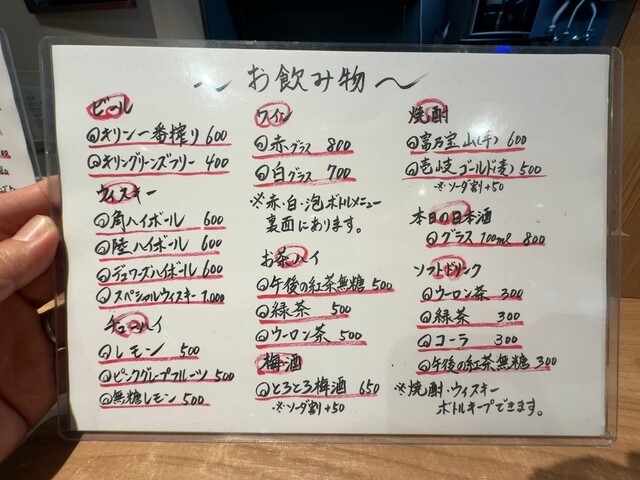 ～お飲み物～
ビール
◎キリン一番搾り 600
◎キリングリーンズフリー 400
ウィスキー
◎角ハイボール 600
◎陸ハイボール 600
◎デュワーズハイボール 600
◎スペシャルウィスキー 1,000
チューハイ
◎レモン 500
◎ピンクグレープフルーツ 500
◎無糖レモン 500
ワイン
◎赤グラス 800
◎白グラス 700
※赤・白・泡ボトルメニュー
裏面にあります。
お茶ハイ
◎午後の紅茶無糖 500
◎緑茶 500
◎ウーロン茶 500
梅酒
◎とろとろ梅酒 650
※ソーダ割+50
焼酎
◎富乃宝山(芋) 600
◎壱岐ゴールド(麦) 500
※ソーダ割+50
本日の日本酒
◎グラス100ml 800
ソフトドリンク
◎ウーロン茶 300
◎緑茶 300
◎コーラ 300
◎午後の紅茶無糖 300
※焼酎・ウィスキー
ボトルキープできます。